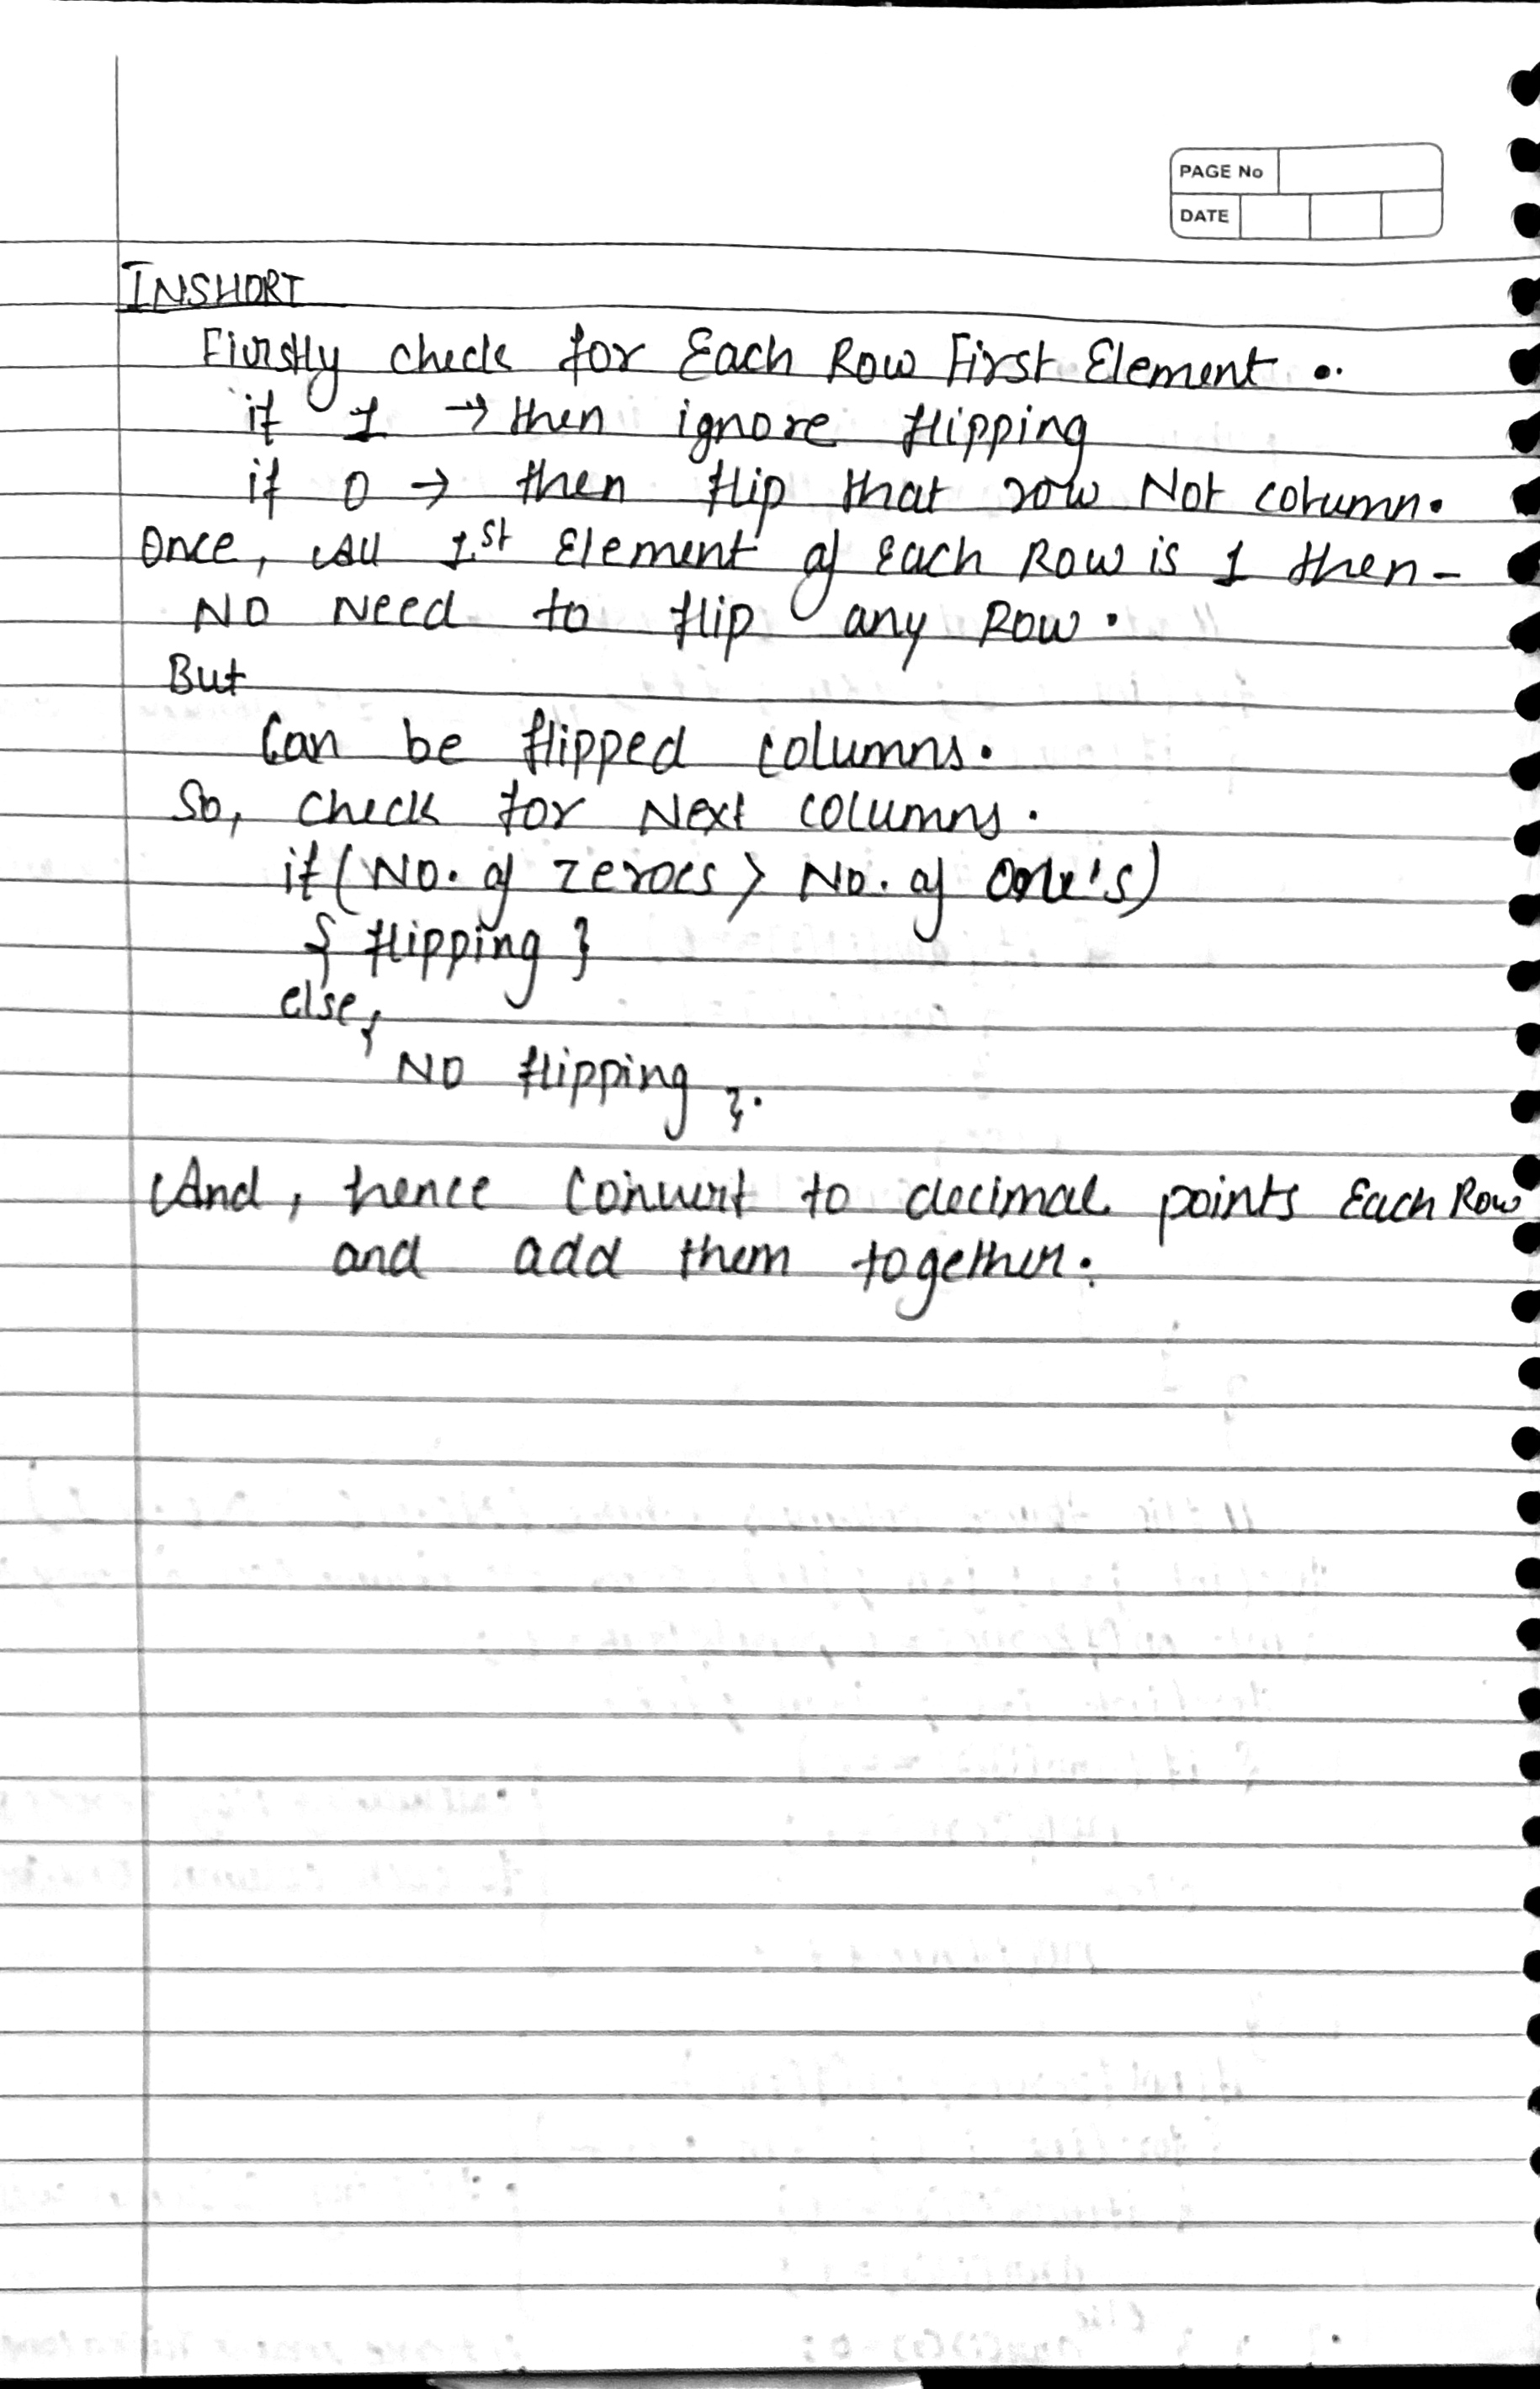 PAGE No
DATE
INSHORT
Firstly check for Each Row First Element .
if 1 → then ignore flipping
if 0 → then flip that row Not column.
Once, All 1st Element of Each Row is 1 then -
NO Need to flip any Row.
But
Can be flipped columns.
So, check for Next columns.
if (No. of zeroes > No. of One's)
{ flipping }
else {
NO flipping }.
And, hence Convert to decimal points Each Row
and add them together.